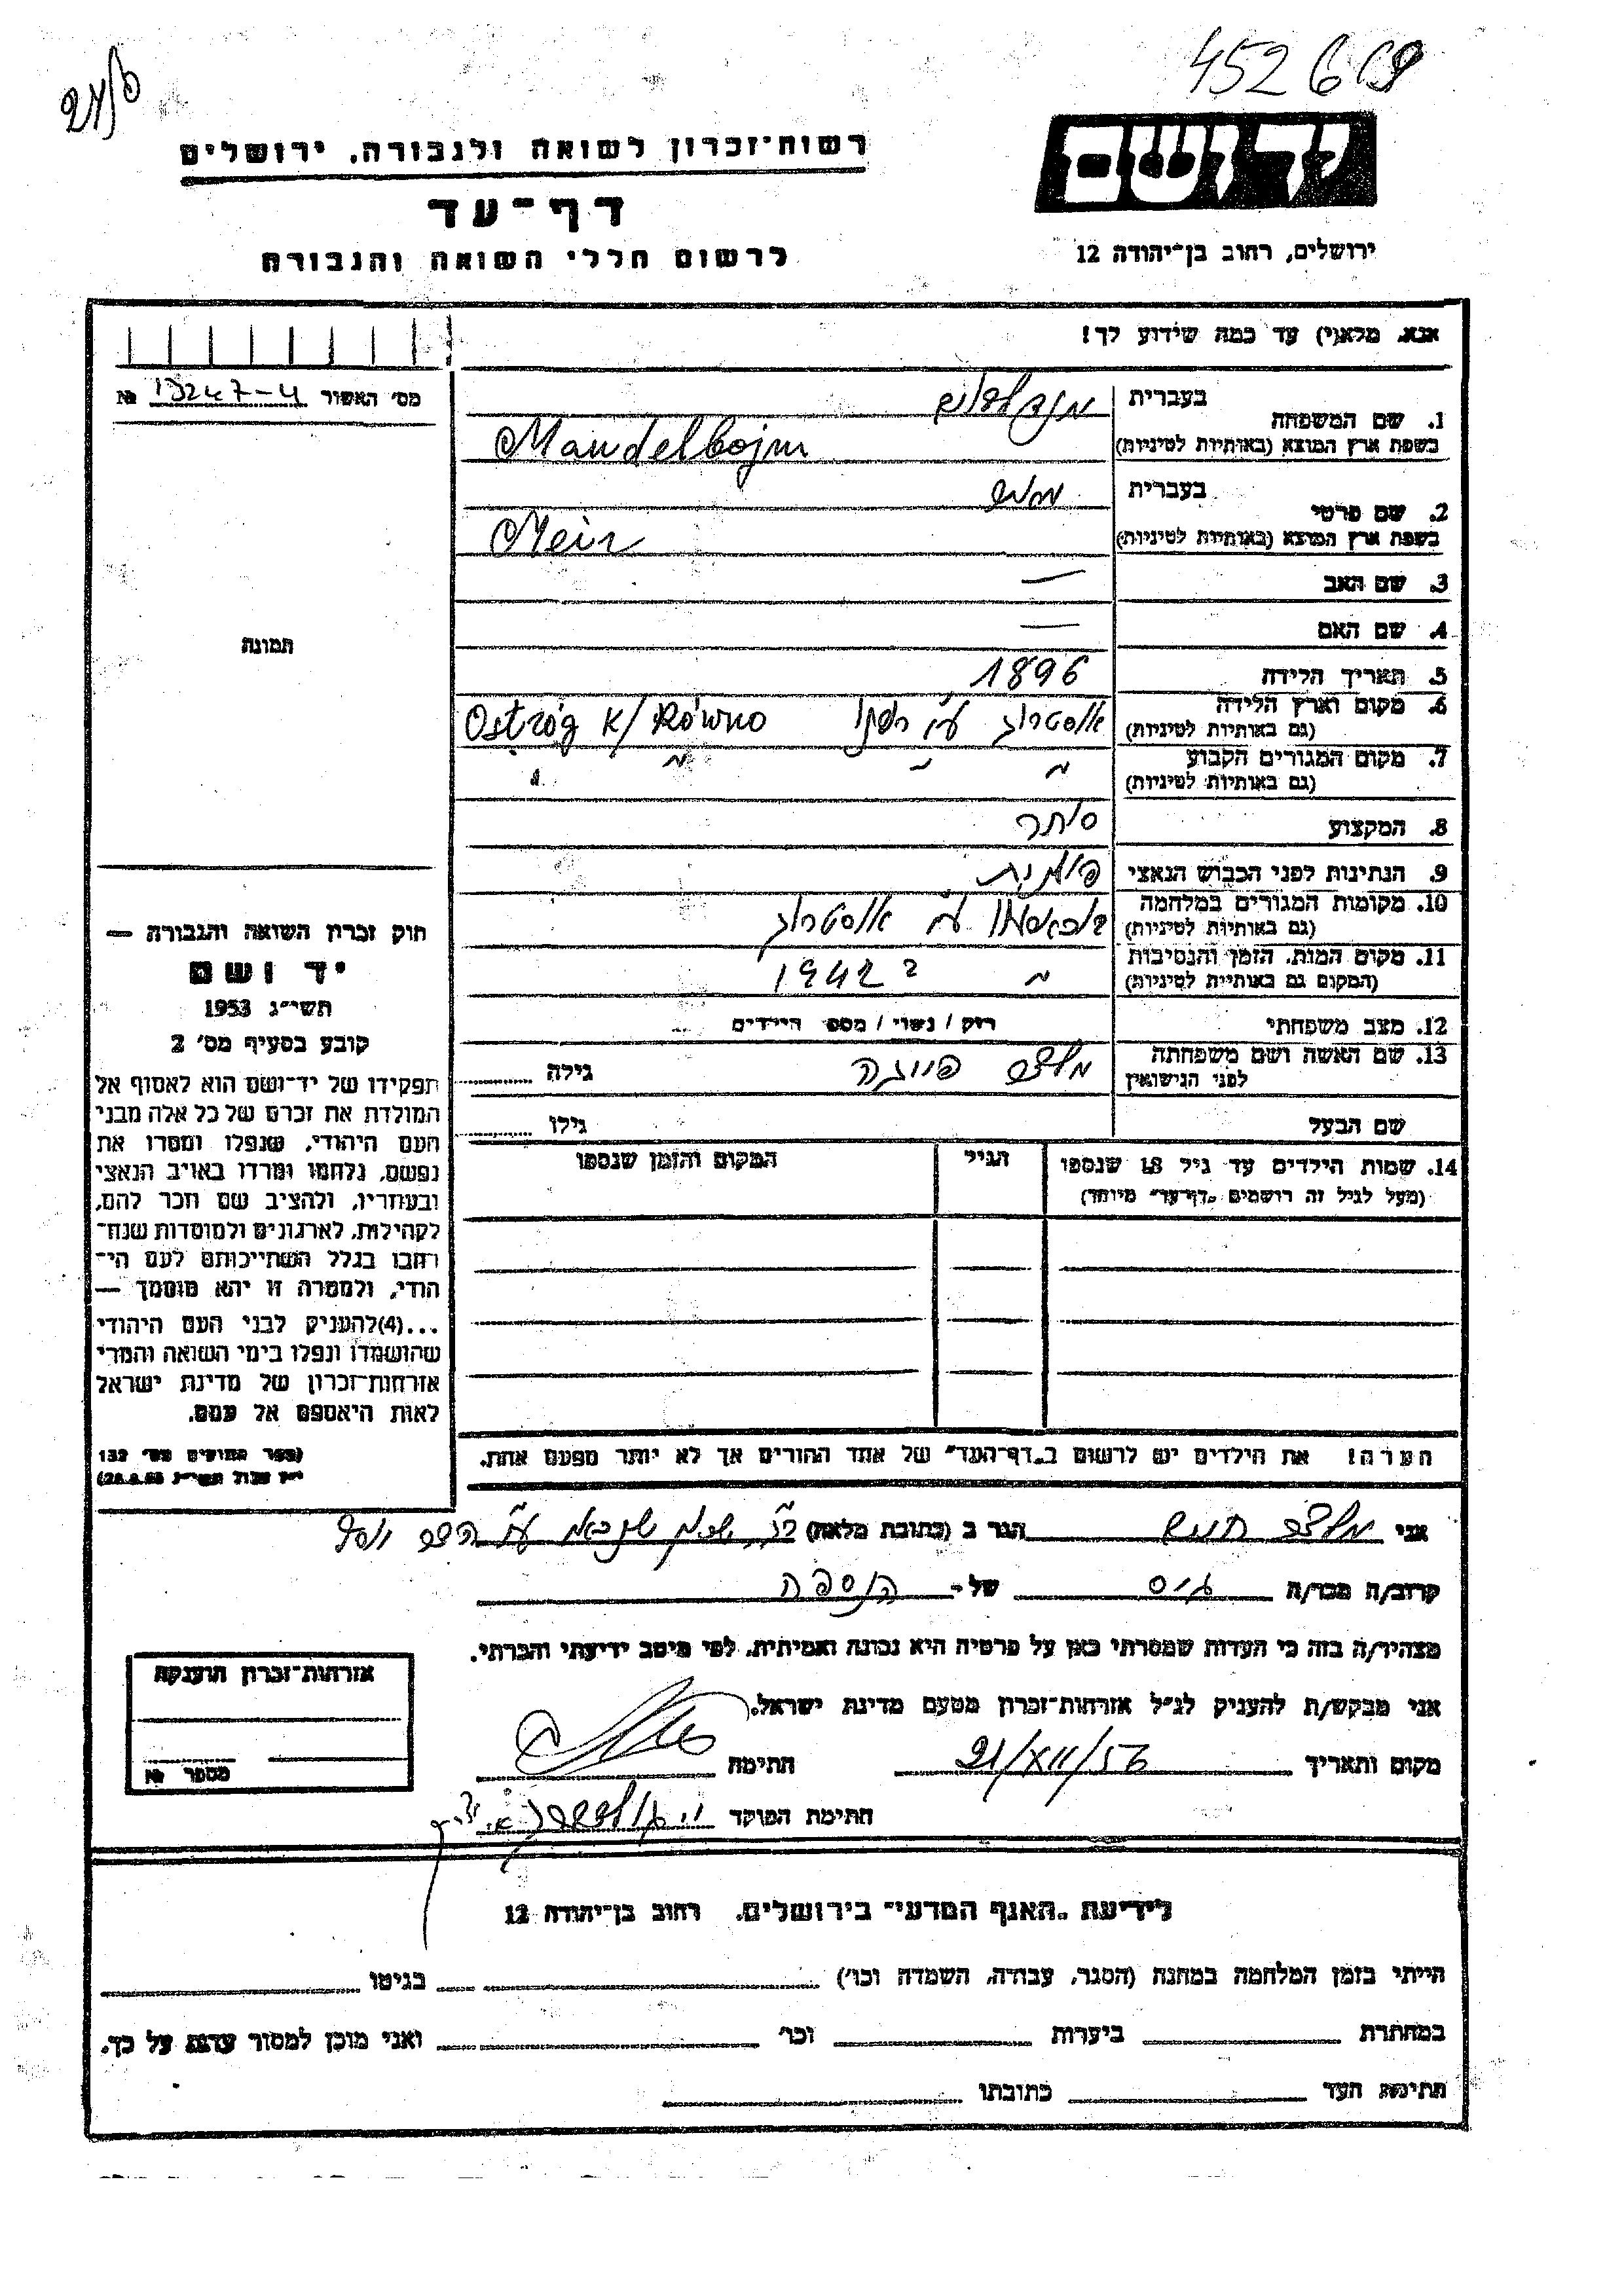 452669
יד ושם
ירושלים, רחוב בן־יהודה 12
רשות־זכרון לשואה ולגבורה, ירושלים
דף־עד
לרשום חללי השואה והגבורה
אנא, מלא(י) עד כמה שידוע לך!
מס׳ האשור № 15247-4
1. שם המשפחה
בעברית מנדלבוים
בשפת ארץ המוצא (באותיות לטיניות) Mandelbojm
2. שם פרטי
בעברית מאיר
בשפת ארץ המוצא (באותיות לטיניות) Meir
3. שם האב —
4. שם האם —
5. תאריך הלידה 1896
6. מקום וארץ הלידה (גם באותיות לטיניות) אוסטרוג ע״י רובנו Ostróg k/Równo
7. מקום המגורים הקבוע (גם באותיות לטיניות) " " " "
8. המקצוע סוחר
9. הנתינות לפני הכבוש הנאצי פולנית
10. מקומות המגורים במלחמה (גם באותיות לטיניות) ע״י אוסטרוג
11. מקום המות, הזמן והנסיבות (המקום גם באותיות לטיניות) " 1942 ?
12. מצב משפחתי רווק / נשוי / מספ׳ הילדים
13. שם האשה ושם משפחתה לפני הנישואין פייגה גילה
שם הבעל גילו
14. שמות הילדים עד גיל 18 שנספו (מעל לגיל זה רושמים „דף־עד״ מיוחד)
הגיל
המקום והזמן שנספו
הערה! את הילדים יש לרשום ב„דף־העד״ של אחד ההורים אך לא יותר מפעם אחת.
תמונה
חוק זכרון השואה והגבורה —
יד ושם
תשי״ג 1953
קובע בסעיף מס׳ 2
תפקידו של יד־ושם הוא לאסוף אל
המולדת את זכרם של כל אלה מבני
העם היהודי, שנפלו ומסרו את
נפשם, נלחמו ומרדו באויב הנאצי
ובעוזריו, ולהציב שם וזכר להם,
לקהילות, לארגונים ולמוסדות שנח־
רבו בגלל השתייכותם לעם הי־
הודי, ולמטרה זו יהא מוסמך —
...(4)להעניק לבני העם היהודי
שהושמדו ונפלו בימי השואה והמרי
אזרחות־זכרון של מדינת ישראל
לאות היאספם אל עמם.
(ספר החוקים מס׳ 132
אני הגר ב (כתובת מלאה)
קרוב/ה מכר/ה גיס של־ הנספה
מצהיר/ה בזה כי העדות שמסרתי כאן על פרטיה היא נכונה ואמיתית, לפי מיטב ידיעתי והכרתי.
אני מבקש/ת להעניק לנ״ל אזרחות־זכרון מטעם מדינת ישראל.
מקום ותאריך 21/XII/56 חתימה
חתימת הפוקד
אזרחות־זכרון הוענקה
מספר №
לידיעת „האגף המדעי״ בירושלים, רחוב בן־יהודה 12
הייתי בזמן המלחמה במחנה (הסגר, עבודה, השמדה וכו׳) בגיטו
במחתרת ביערות וכו׳ ואני מוכן למסור עדות על כך.
חתימת העד כתובתו